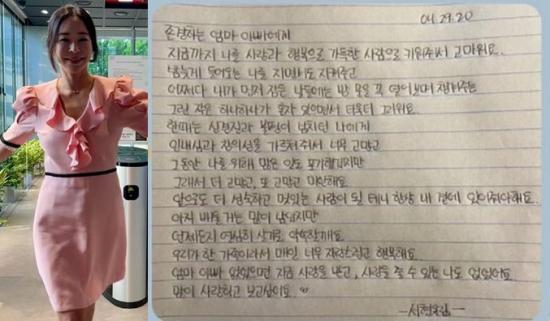 04.29.20
존경하는 엄마 아빠에게
지금까지 나를 사랑과 행복으로 가득한 사람으로 키워주셔서 고마워요.
늦게 들어오는 나를 지켜주고
어쩌다 내가 먼저 잠든 날들에는 방 문을 꼭 열어보며 챙겨주는
그런 작은 하나하나가 혼자 있으면서 더욱더 그리워요.
한때는 실천력과 불평이 넘치던 나에게
인내심과 창의성을 가르쳐주셔서 너무 고맙고
그동안 나를 위해 많은 일도 포기했겠지만
그래서 더 고맙고, 또 고맙고 미안해요
앞으로도 더 성숙하고 멋있는 사람이 될 테니 항상 내 곁에 있어줘야해요.
아직 배울 거는 많이 남았지만
언제든지 열심히 살기로 약속할게요.
우리가 한 가족이라서 매일 너무 자랑스럽고 행복해요.
엄마 아빠 없었으면 지금 사랑을 받고, 사랑을 줄 수 있는 나도 없었어요
많이 사랑하고 보고싶어요 ♡